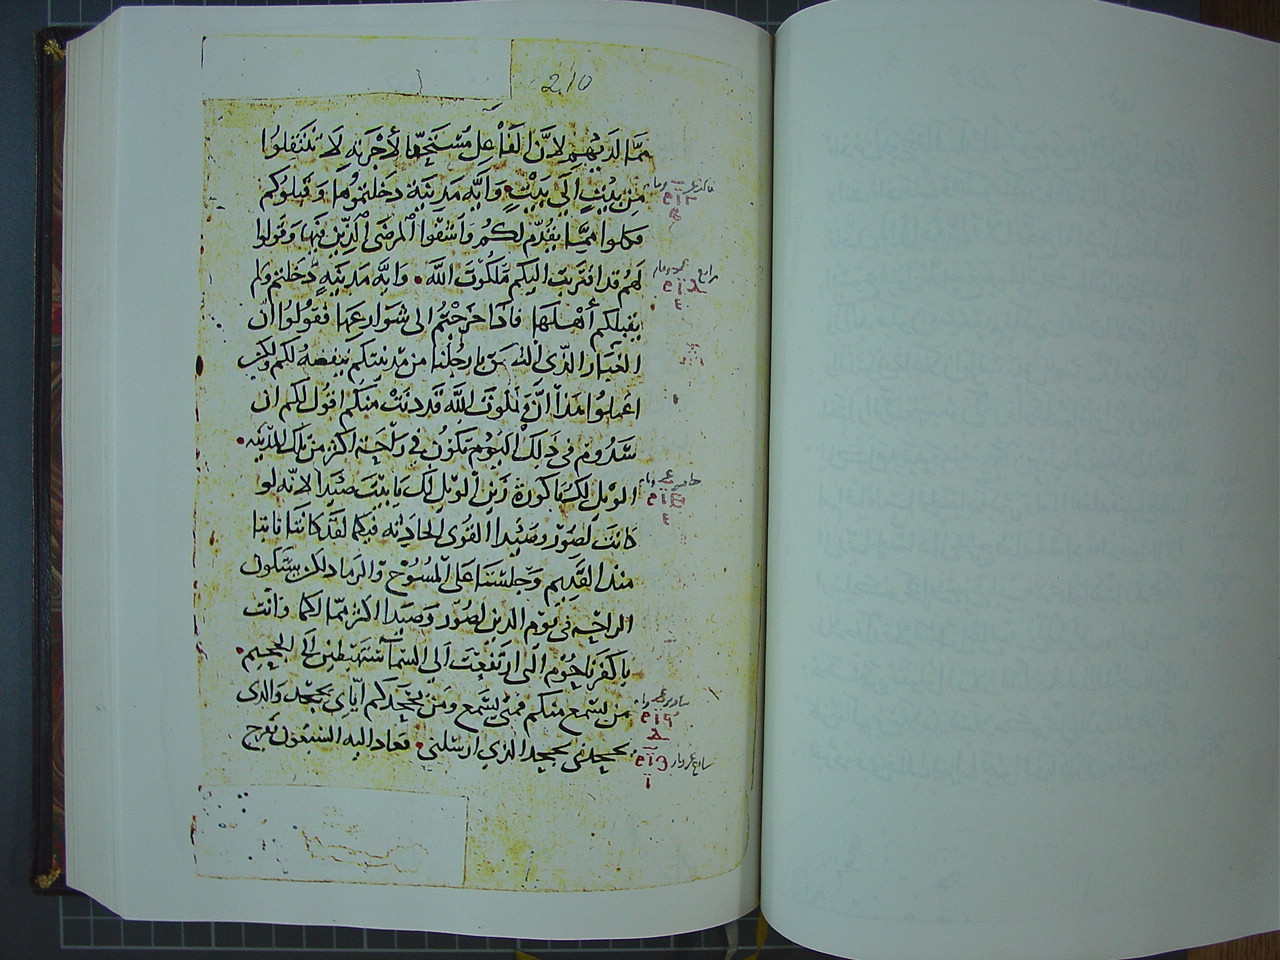 210
مما لديهم لان الفاعل مستحقا لأجرته لا تنتقلوا
من بيت الى بيت وايه مدينة دخلتموها وقبلوكم
فكلوا مما يقدم لكم واشفوا المرضى الذين بها وقولوا
لهم قد اقتربت اليكم ملكوت الله • وايه مدينه دخلتم ولم
يقبلكم أهلها فاذا خرجتم الى شوارعها فقولوا ان
الغبار الذى التصق بارجلنا من مدينتكم ننفضه لكم ولكن
اعملوا هذا ان ملكوت الله قد دنت منكم اقول لكم ان
سدوم فى ذلك اليوم تكون فى راحة اكثر من تلك المدينه •
الويل لك يا كورة زين الويل لك يا بيت صيدا لانه لو
كانت لصور وصيدا القوى الحادثه فيكما لقد كانتا تابتا
منذ القديم وجلستا على المسوح والرماد لكن ستكون
الراحه فى يوم الدين لصور وصيدا اكثر مما لكما وانت
يا كفرناحوم التى ارتفعت الى السمآ ستهبطين الى الجحيم •
من يسمع منكم فمنى يسمع ومن يجحدكم اياى يجحد والذى
يجحدنى يجحد الذي ارسلنى • فعاد اليه السبعون بفرح